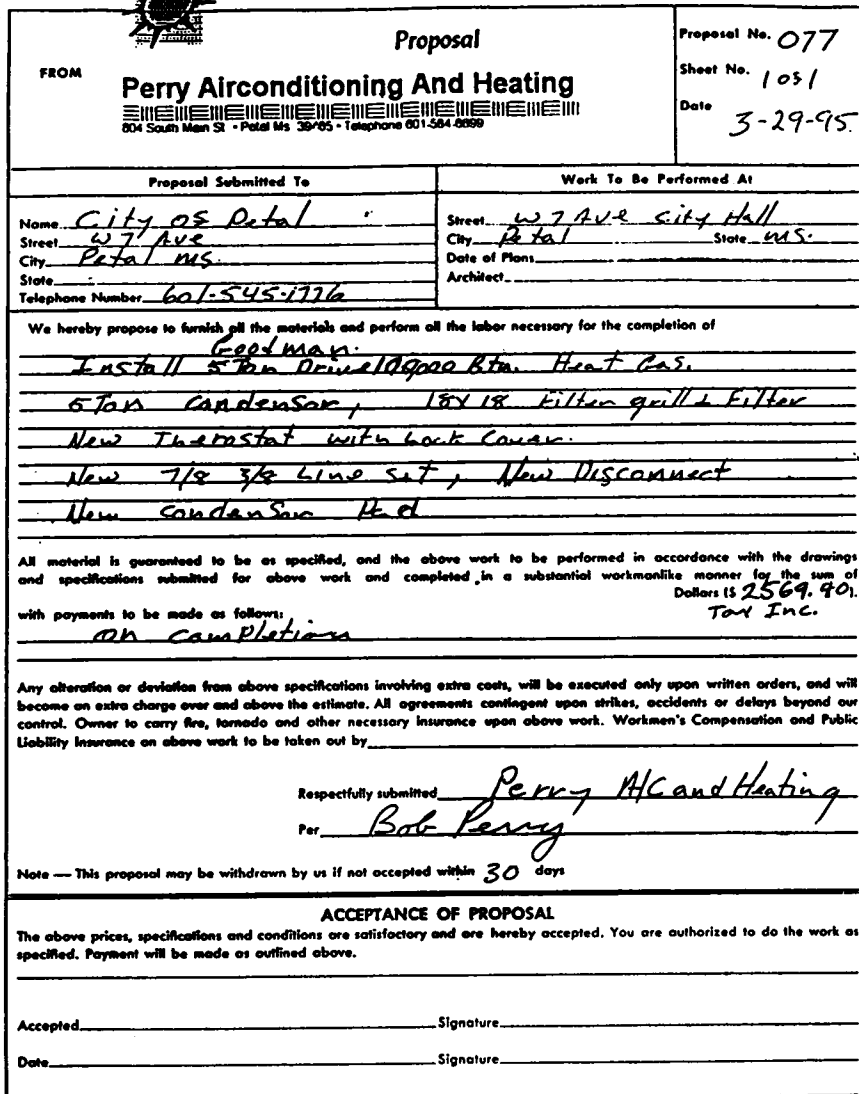 Proposal
Proposal No. 077
FROM
Sheet No. 1 of 1
Perry Airconditioning And Heating
Date 3-29-95
804 South Main St • Petal Ms 39465 • Telephone 601-584-6699
Proposal Submitted To
Work To Be Performed At
Name City of Petal
Street W 7 Ave City Hall
Street W 7 Ave
City Petal State MS.
City Petal MS.
Date of Plans
State
Architect
Telephone Number 601-545-1776
We hereby propose to furnish all the materials and perform all the labor necessary for the completion of
Goodman.
Install 5 Ton Btu. Heat Gas.
5 Ton Condensor, 18x18 Filter grill & Filter
New Thermostat with Lock Cover.
New 7/8 3/8 Line Set, New Disconnect
New Condensor Pad
All material is guaranteed to be as specified, and the above work to be performed in accordance with the drawings
and specifications submitted for above work and completed in a substantial workmanlike manner for the sum of
Dollars ($ 2569.90).
with payments to be made as follows:
Tax Inc.
on Completion
Any alteration or deviation from above specifications involving extra costs, will be executed only upon written orders, and will
become an extra charge over and above the estimate. All agreements contingent upon strikes, accidents or delays beyond our
control. Owner to carry fire, tornado and other necessary insurance upon above work. Workmen's Compensation and Public
Liability Insurance on above work to be taken out by
Respectfully submitted Perry A/C and Heating
Per Bob Perry
Note — This proposal may be withdrawn by us if not accepted within 30 days
ACCEPTANCE OF PROPOSAL
The above prices, specifications and conditions are satisfactory and are hereby accepted. You are authorized to do the work as
specified. Payment will be made as outlined above.
Accepted Signature
Date Signature